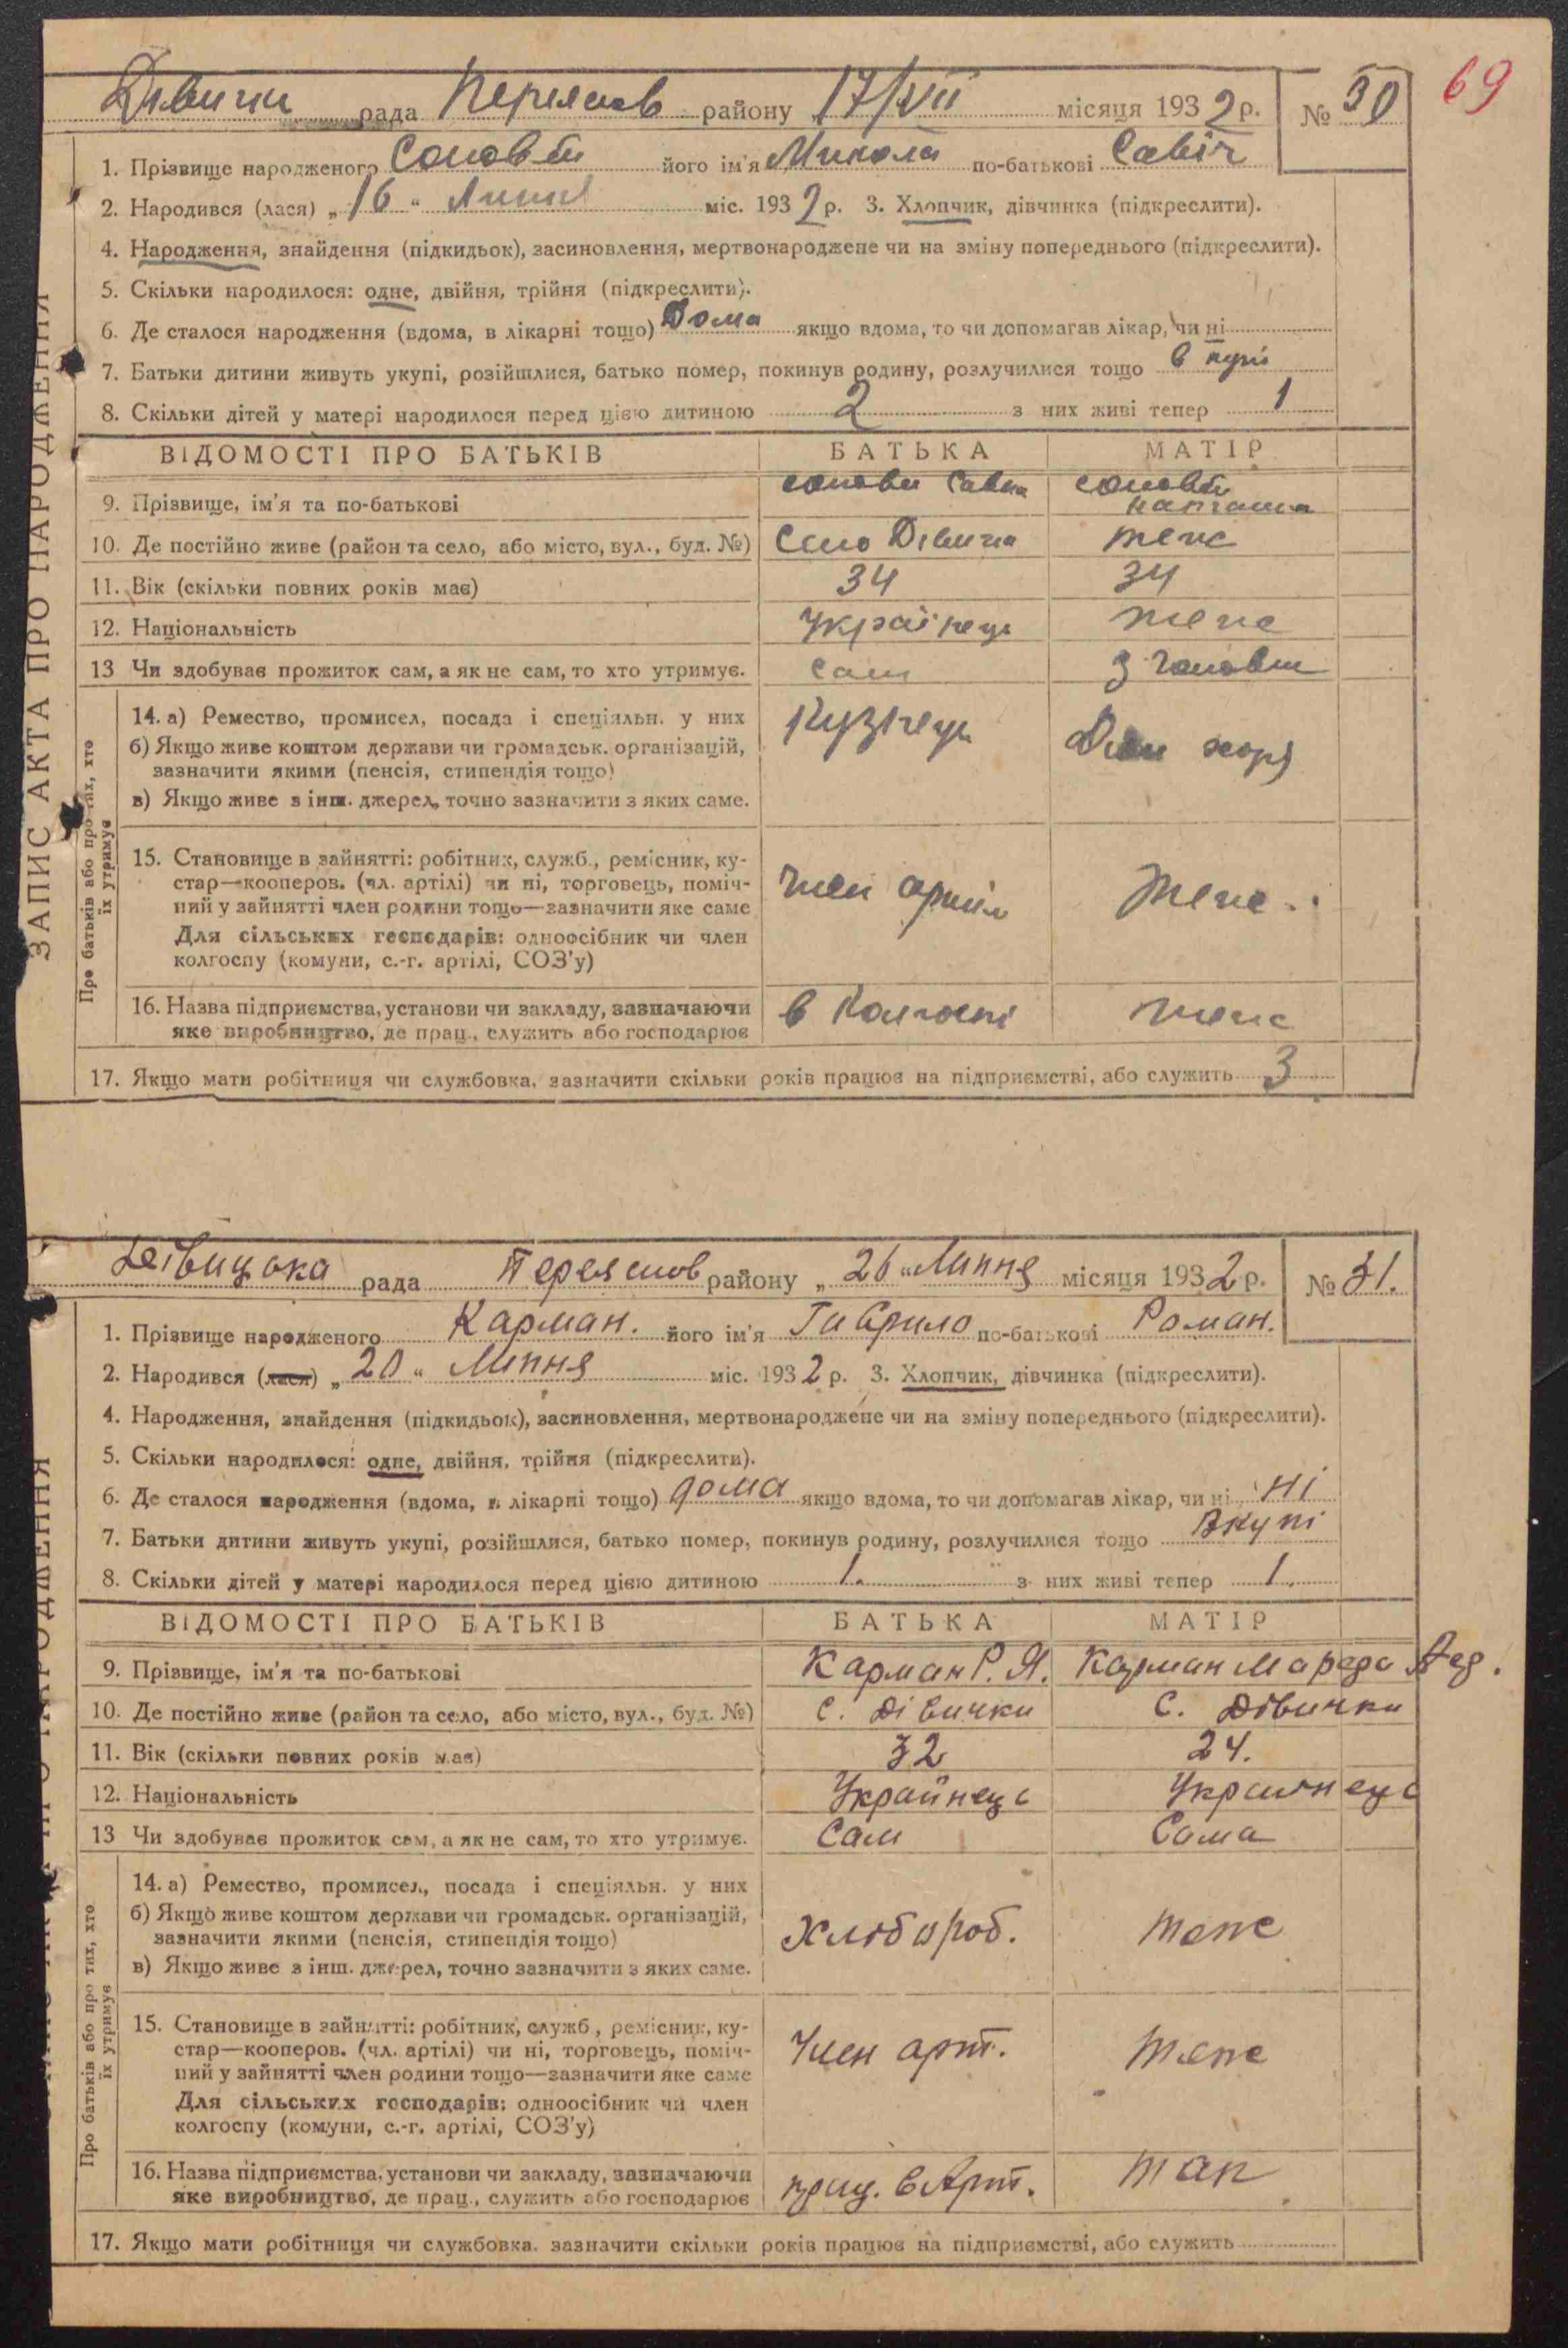 69
Дівички рада Переяслів району 17/VII місяця 1932 р. № 30
ЗАПИС АКТА ПРО НАРОДЖЕННЯ
1. Прізвище народженого його ім'я Микола по-батькові Савіч
2. Народився (лася) „ 16 “ Липня міс. 1932 р. 3. Хлопчик, дівчинка (підкреслити).
4. Народження, знайдення (підкидьок), засиновлення, мертвонароджене чи на зміну попереднього (підкреслити).
5. Скільки народилося: одне, двійня, трійня (підкреслити).
6. Де сталося народження (вдома, в лікарні тощо) Дома якщо вдома, то чи допомагав лікар, чи ні
7. Батьки дитини живуть укупі, розійшлися, батько помер, покинув родину, розлучилися тощо в купі
8. Скільки дітей у матері народилося перед цією дитиною 2 з них живі тепер 1
ВІДОМОСТІ ПРО БАТЬКІВ БАТЬКА МАТІР
9. Прізвище, ім'я та по-батькові Сава
10. Де постійно живе (район та село, або місто, вул., буд. №) Село Дівички теж
11. Вік (скільки повних років має) 34 34
12. Національність Українець теже
13 Чи здобуває прожиток сам, а як не сам, то хто утримує. сам
Про батьків або про тих, хто їх утримує
14. а) Ремество, промисел, посада і спеціяльн. у них Кузнець
б) Якщо живе коштом держави чи громадськ. організацій,
зазначити якими (пенсія, стипендія тощо)
в) Якщо живе з інш. джерел, точно зазначити з яких саме.
15. Становище в зайнятті: робітник, служб., ремісник, ку-
стар—кооперов. (чл. артілі) чи ні, торговець, поміч- член артіл теже
ний у зайнятті член родини тощо—зазначити яке саме
Для сільських господарів: одноосібник чи член
колгоспу (комуни, с.-г. артілі, СОЗ'у)
16. Назва підприємства, установи чи закладу, зазначаючи в Колгоспі теже
яке виробництво, де прац., служить або господарює
17. Якщо мати робітниця чи службовка, зазначити скільки років працює на підприємстві, або служить 3
Дівицька рада Переяслов району „ 26 “ Липня місяця 1932 р. № 31.
1. Прізвище народженого Карман. його ім'я Гаврило по-батькові Роман.
2. Народився (лася) „ 20 “ Липня міс. 1932 р. 3. Хлопчик, дівчинка (підкреслити).
4. Народження, знайдення (підкидьок), засиновлення, мертвонароджене чи на зміну попереднього (підкреслити).
5. Скільки народилося: одне, двійня, трійня (підкреслити).
6. Де сталося народження (вдома, в лікарні тощо) дома якщо вдома, то чи допомагав лікар, чи ні ні
7. Батьки дитини живуть укупі, розійшлися, батько помер, покинув родину, розлучилися тощо Вкупі
8. Скільки дітей у матері народилося перед цією дитиною 1. з них живі тепер 1.
ВІДОМОСТІ ПРО БАТЬКІВ БАТЬКА МАТІР
9. Прізвище, ім'я та по-батькові Карман Р. Я. Карман
10. Де постійно живе (район та село, або місто, вул., буд. №) с. Дівички с. Дівички
11. Вік (скільки повних років має) 32 24.
12. Національність Українець Українець
13 Чи здобуває прожиток сам, а як не сам, то хто утримує. Сам Сама
Про батьків або про тих, хто їх утримує
14. а) Ремество, промисел, посада і спеціяльн. у них
б) Якщо живе коштом держави чи громадськ. організацій, Хлібороб. теже
зазначити якими (пенсія, стипендія тощо)
в) Якщо живе з інш. джерел, точно зазначити з яких саме.
15. Становище в зайнятті: робітник, служб., ремісник, ку-
стар—кооперов. (чл. артілі) чи ні, торговець, поміч- Член арт. теже
ний у зайнятті член родини тощо—зазначити яке саме
Для сільських господарів: одноосібник чи член
колгоспу (комуни, с.-г. артілі, СОЗ'у)
16. Назва підприємства, установи чи закладу, зазначаючи прац. в Арт.
яке виробництво, де прац., служить або господарює
17. Якщо мати робітниця чи службовка, зазначити скільки років працює на підприємстві, або служить